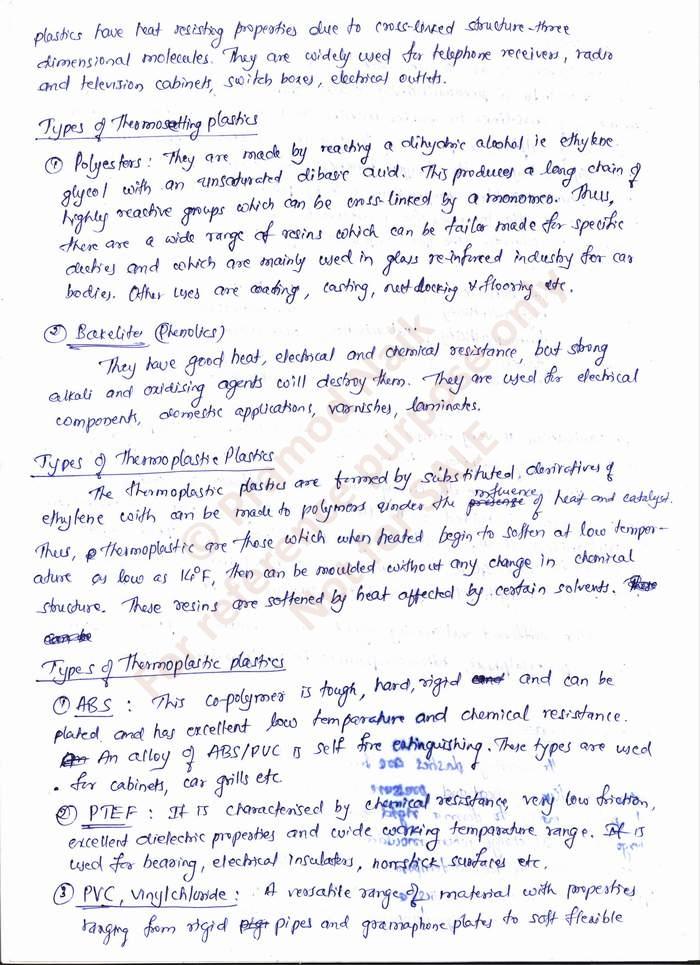 plastics have heat resisting properties due to cross-linked structure-three
dimensional molecules. They are widely used for telephone receivers, radio
and television cabinets, switch boxes, electrical outlets.
Types of Thermosetting plastics
① Polyesters: They are made by reaching a dihydric alcohol ie ethylene
glycol with an unsaturated dibasic acid. This produces a long chain of
highly reactive groups which can be cross-linked by a monomer. Thus,
there are a wide range of resins which can be tailor made for specific
duties and which are mainly used in glass re-inforced industry for car
bodies. Other uses are coating, casting, & flooring etc.
② Bakelite (Phenolics)
They have good heat, electrical and chemical resistance, but strong
alkali and oxidising agents will destroy them. They are used for electrical
components, domestic applications, varnishes, laminates.
Types of Thermoplastic Plastics
The thermoplastic plastics are formed by substituted derivatives of
ethylene with can be made to polymers under the influence of heat and catalyst.
Thus, thermoplastic are those which when heated begin to soften at low temper-
ature as low as 140°F, then can be moulded without any change in chemical
structure. These resins are softened by heat affected by certain solvents.
Types of Thermoplastic plastics
① ABS : This co-polymer is tough, hard, rigid and can be
plated and has excellent low temparature and chemical resistance.
An alloy of ABS/PVC is self fire extinguishing. These types are used
for cabinets, car grills etc.
② PTEF : It is characterised by chemical resistance, very low friction,
excellent dielectric properties and wide working temparature range. It is
used for bearing, electrical insulators, nonstick surfaces etc.
③ PVC, Vinylchloride : A versatile range of material with properties
ranging from rigid pipes and gramaphone plates to soft flexible
© Pramod Naik
For reference purpose only
Not for SALE